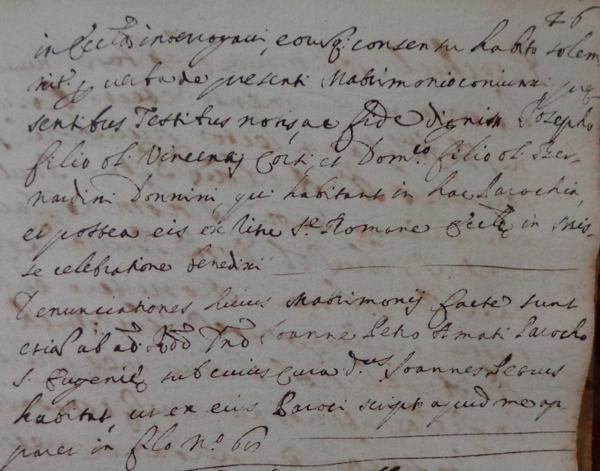 26
in Eccl.a interrogavi, eorusq; consensu habito solem
nit.r p verba de presenti Matrimonio coniunxi pre
sentibus Testibus notis, ac fide dignis Josepho
filio ol. Vincentij Corti, et Dom.co filio ol. Ber
nardini Donnini, qui habitant in hac Parochia,
et postea eis ex Ritu S.e Romane Eccl.e in Mis
se celebratione benedixi
Denunciationes huius Matrimonij facte sunt
etia ab ad. Rdo Dno Joanne Petro Amati Parocho
S. Eugenie sub cuius cura d.us Joannes Petrus
habitat, ut ex eius Paroci script. apud me ap
paret in filo n.o 61